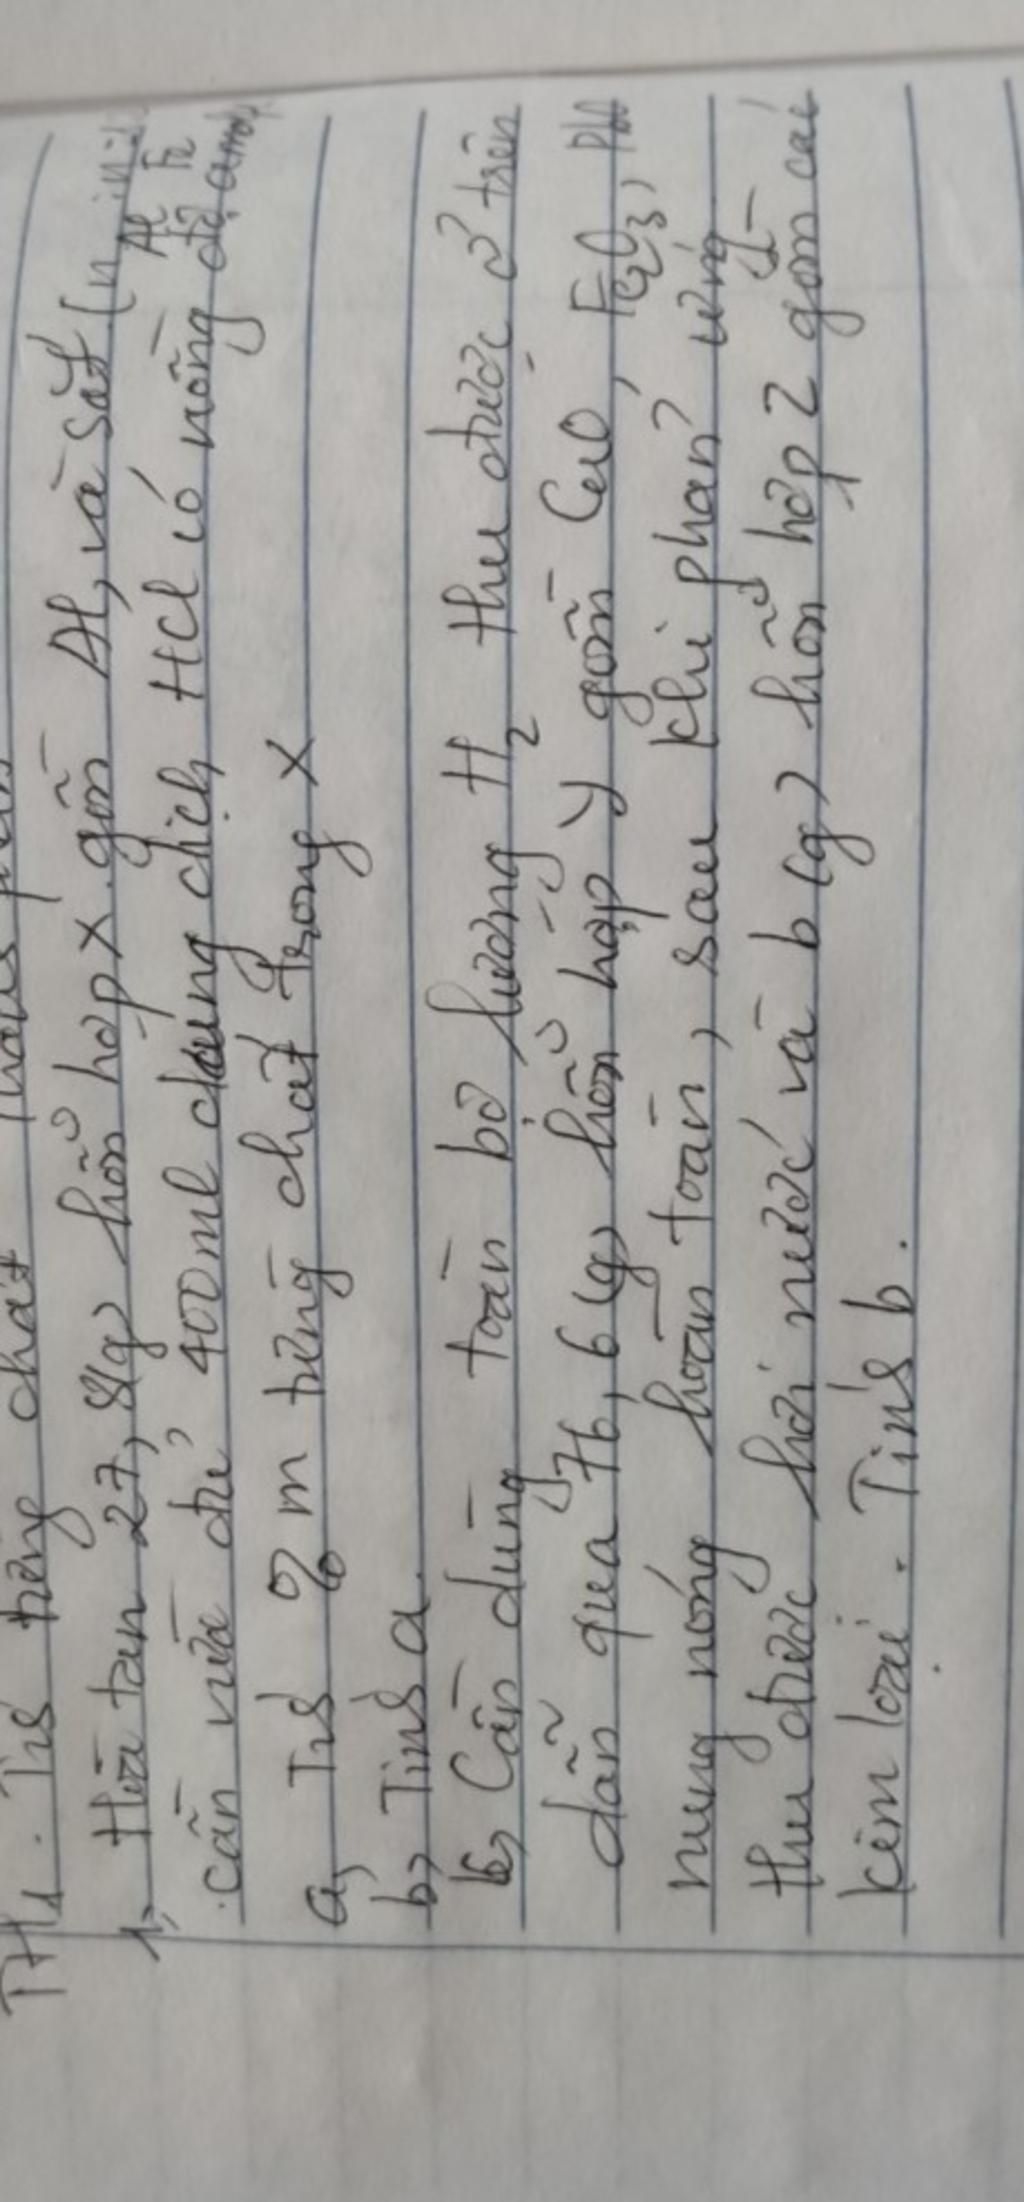 TH1. Tính riêng chất
1, Hòa tan 27,8(g) hỗn hợp X gồm Al, và sắt (n
Al Fe
cần vừa đủ 400ml dung dịch HCl có nồng độ a
a, Tính % m từng chất trong X
b, Tính a.
b, Cần dùng toàn bộ lượng H2 thu được ở trên
dẫn qua 76,6(g) hỗn hợp Y gồm CuO, Fe2O3, PbO
nung nóng hoàn toàn, sau khi phản ứng
thu được hơi nước và b(g) hỗn hợp Z gồm các
kim loại. Tính b.